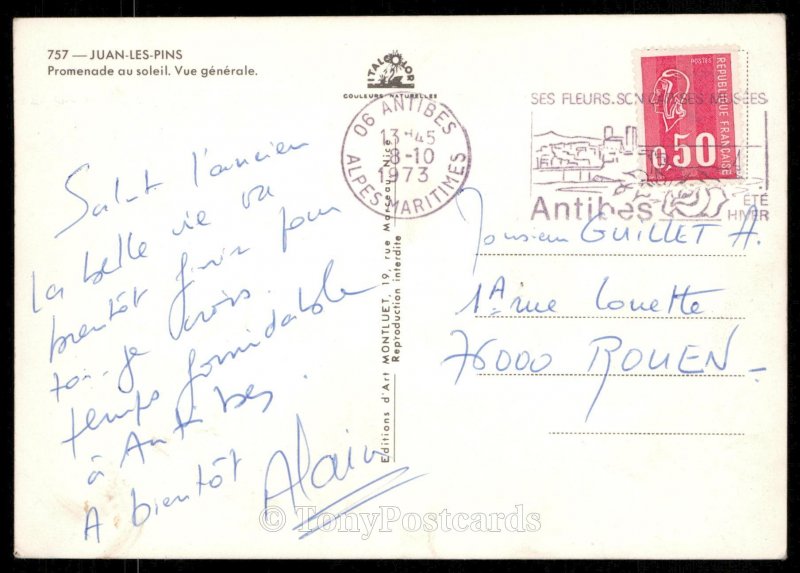 757 — JUAN-LES-PINS
Promenade au soleil. Vue générale.
ITALCOLOR
COULEURS NATURELLES
06 ANTIBES
13 H45
8-10
1973
ALPES MARITIMES
SES FLEURS. SON SES MUSÉES
Antibes
ÉTÉ
HIVER
POSTES
RÉPUBLIQUE FRANÇAISE
0,50
Salut l'ancien
la belle vie va
bientôt finir pour
toi je crois.
temps formidable
à Antibes.
A bientôt
Alain
Editions d'Art MONTLUET, 19, rue Marceau, Nice
Reproduction interdite
Monsieur GUILLET A.
1A rue Louette
76000 ROUEN -
© TonyPostcards